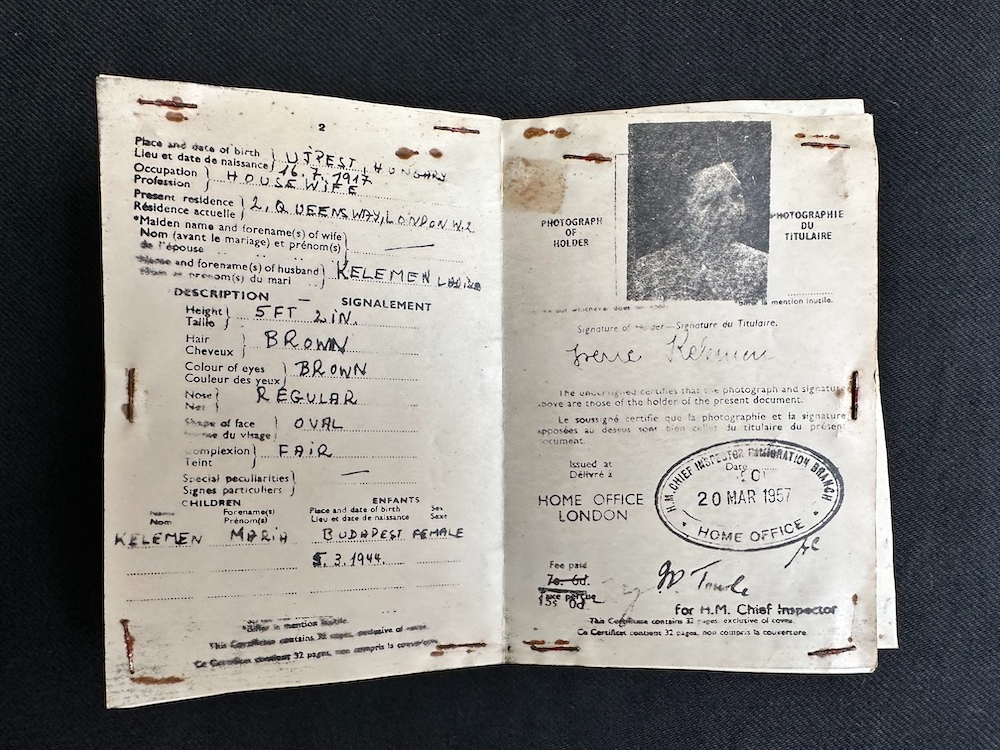 2
Place and date of birth } UJPEST, HUNGARY
Lieu et date de naissance } 16.7.1917
Occupation } HOUSEWIFE
Profession
Present residence } 2, QUEENSWAY, LONDON W.2.
Résidence actuelle
*Maiden name and forename(s) of wife } —
Nom (avant le mariage) et prénom(s)
de l'épouse
Name and forename(s) of husband } KELEMEN
Nom et prénom(s) du mari
DESCRIPTION — SIGNALEMENT
Height } 5FT 2IN.
Taille
Hair } BROWN
Cheveux
Colour of eyes } BROWN
Couleur des yeux
Nose } REGULAR
Nez
Shape of face } OVAL
Forme du visage
Complexion } FAIR
Teint
Special peculiarities } —
Signes particuliers
CHILDREN ENFANTS
Name Forename(s) Place and date of birth Sex
Nom Prénom(s) Lieu et date de naissance Sexe
KELEMEN MARIA BUDAPEST FEMALE
5.3.1944.
*Biffer la mention inutile.
This Certificate contains 32 pages, exclusive of cover.
Ce Certificat contient 32 pages, non compris la couverture.
PHOTOGRAPH
OF
HOLDER
PHOTOGRAPHIE
DU
TITULAIRE
out whichever does not
biffer la mention inutile.
Signature of Holder—Signature du Titulaire.
Irene Kelemen
The undersigned certifies that the photograph and signature
above are those of the holder of the present document.
Le soussigné certifie que la photographie et la signature
apposées au dessus sont bien celles du titulaire du présent
document.
Issued at
Délivré à
Date
HOME OFFICE
LONDON
H.M. CHIEF INSPECTOR IMMIGRATION BRANCH
20 MAR 1957
HOME OFFICE
Fee paid
7s. 6d.
Taxe perçue
15s 0d
for H.M. Chief Inspector
This Certificate contains 32 pages, exclusive of cover.
Ce Certificat contient 32 pages, non compris la couverture.